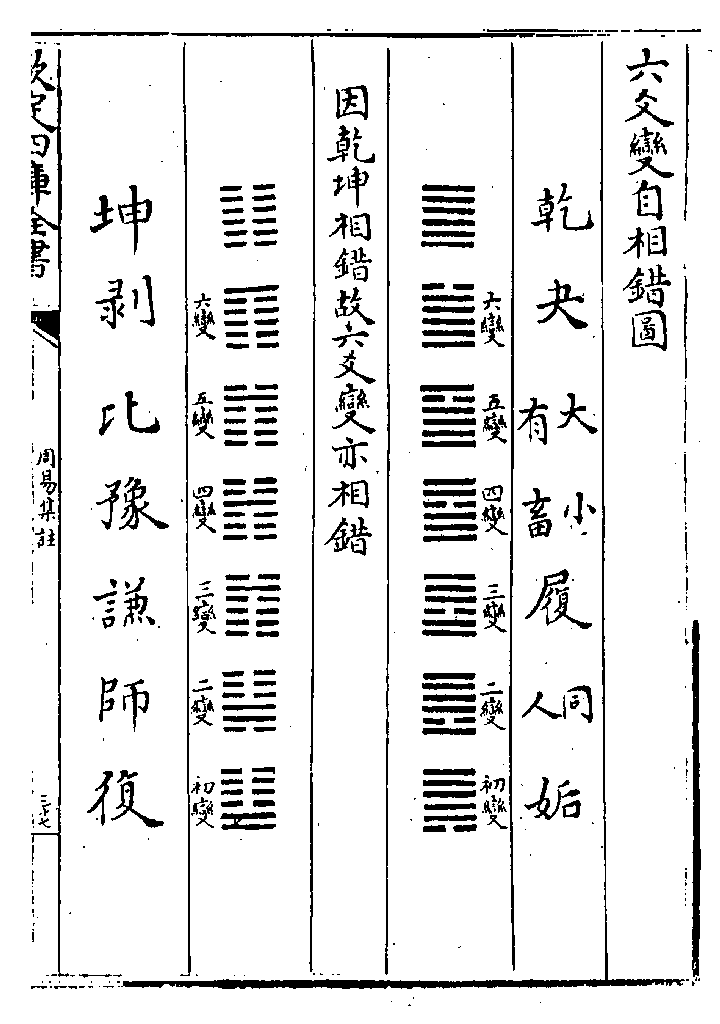 六爻變自相錯圖
乾 夬 大有 小畜 履 同人 姤
六變 五變 四變 三變 二變 初變
因乾坤相錯故六爻變亦相錯
六變 五變 四變 三變 二變 初變
坤 剥 比 豫 謙 師 復
欽定四庫全書
周易集註